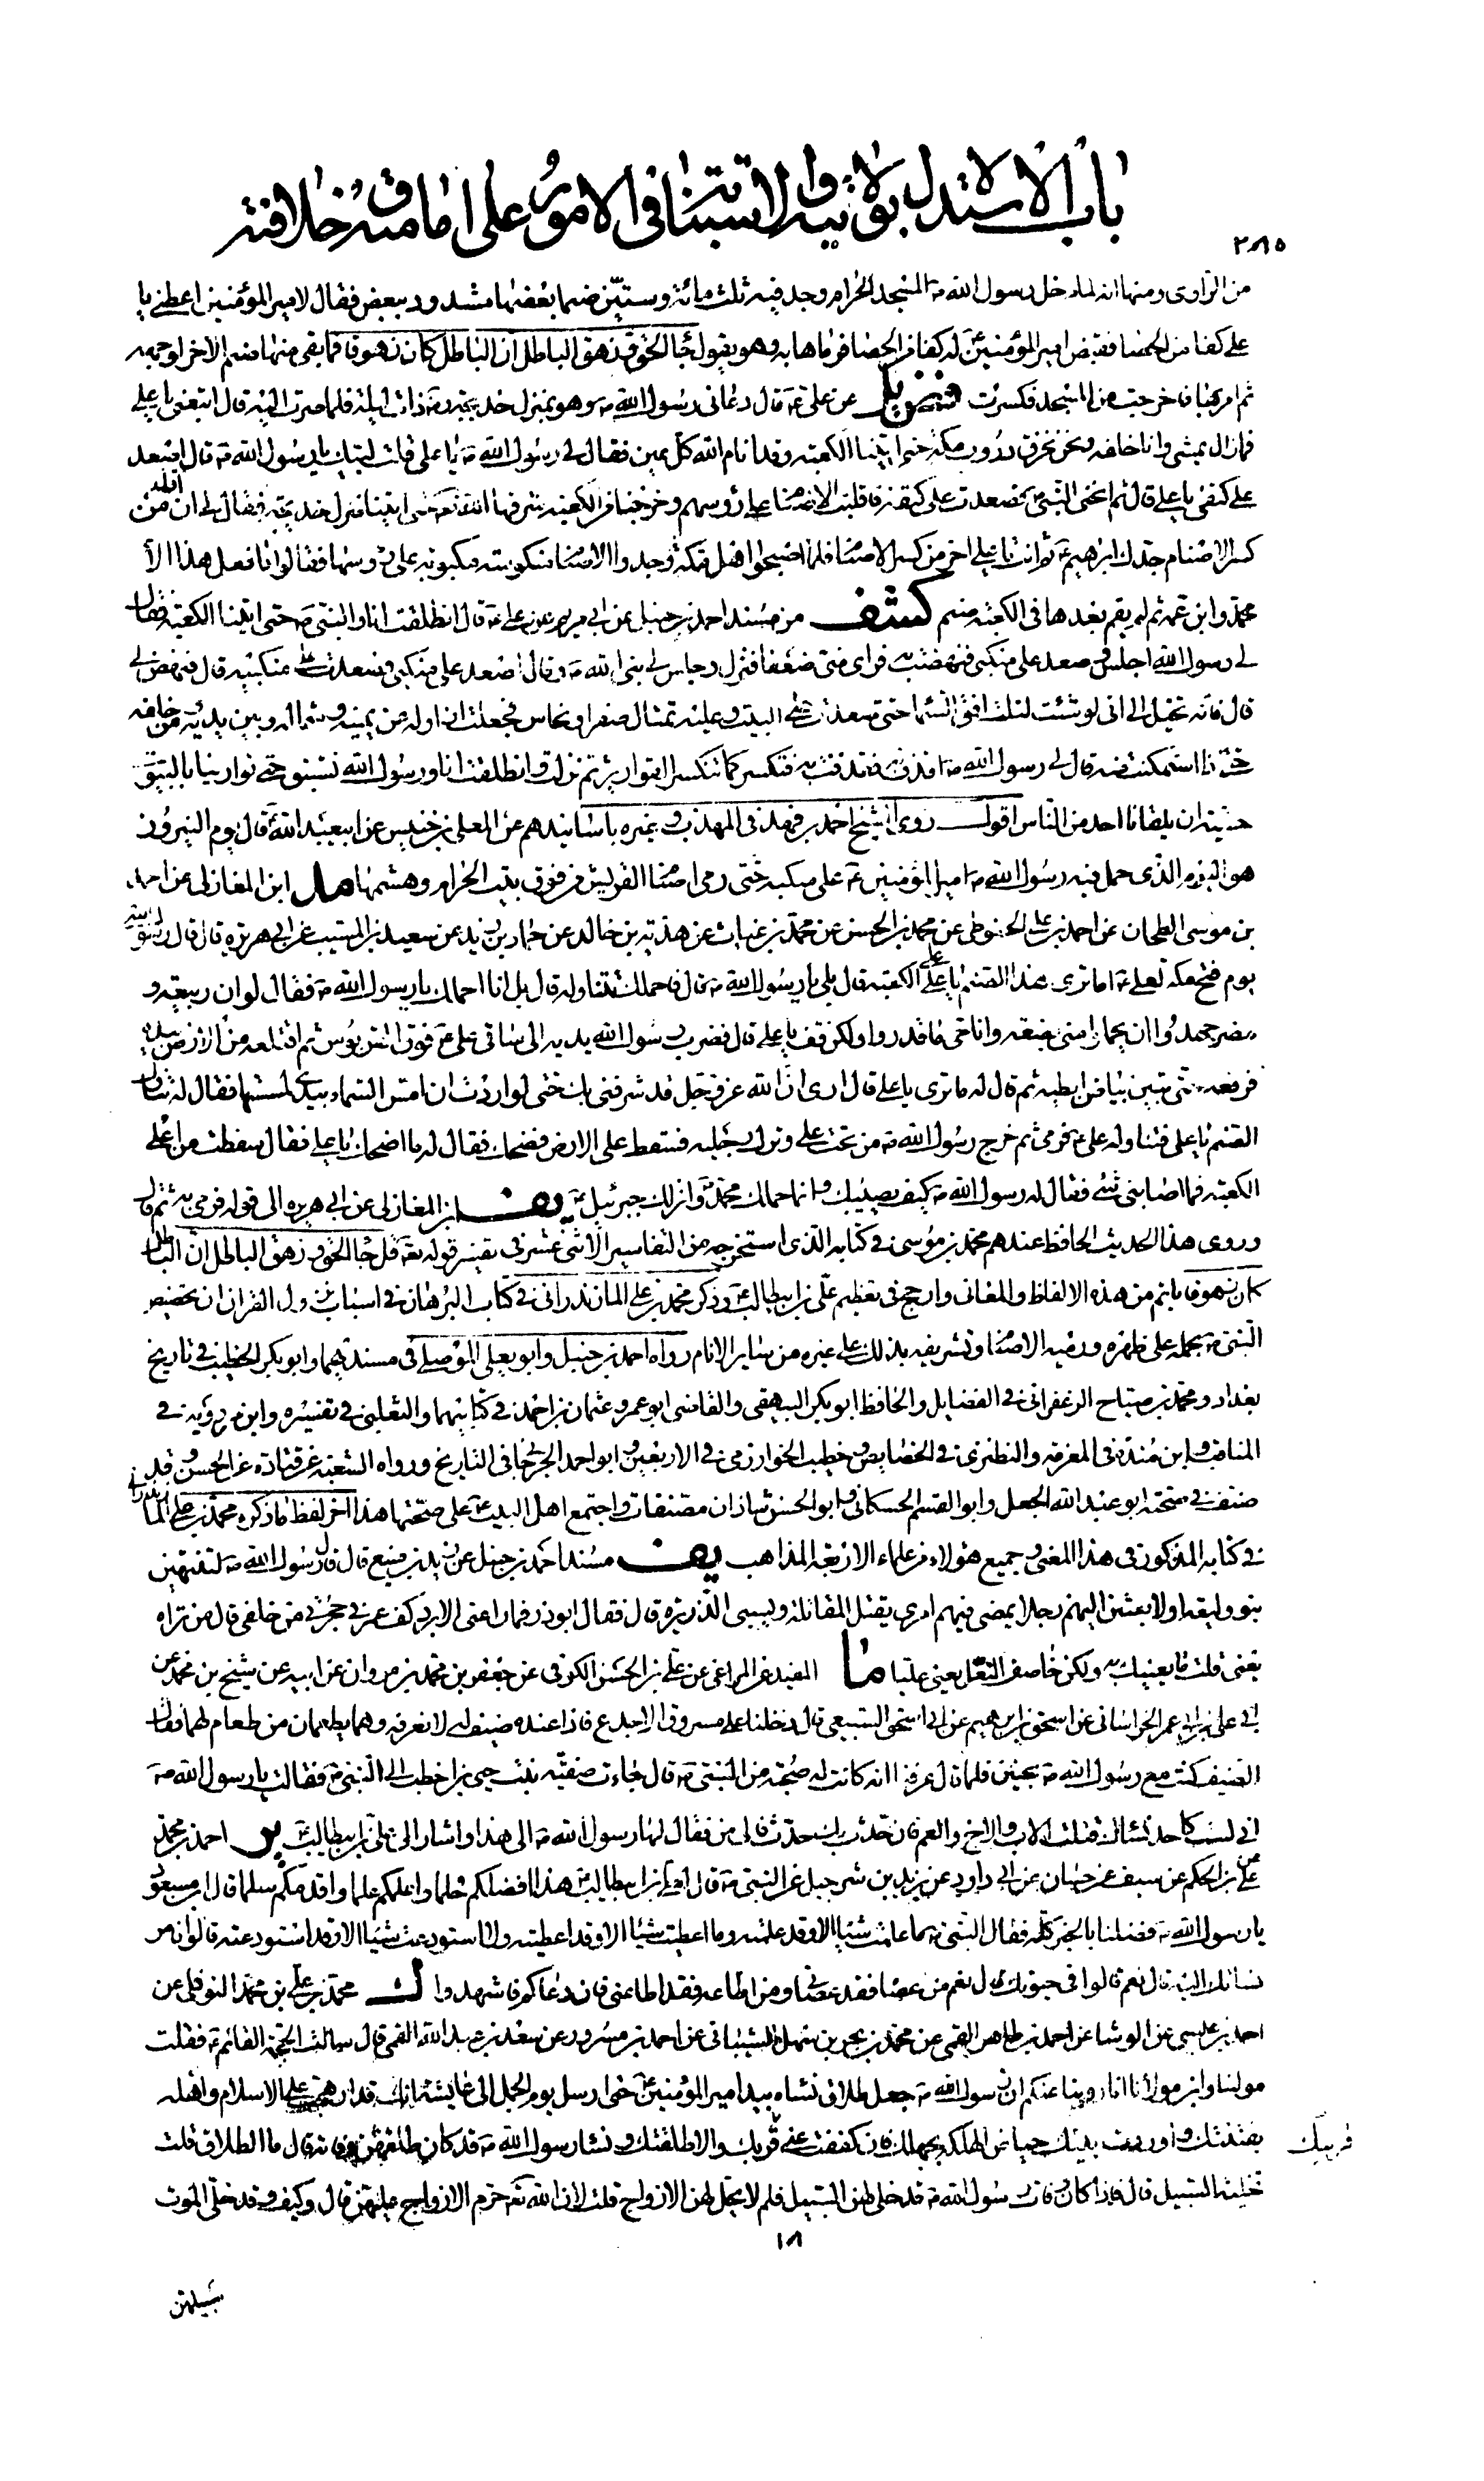 باب الاستدلال بولايته واستنابته في الامور على امامته وخلافته
٢٨٥
من الراوى ومنها انه لما دخل رسول الله ص المسجد الحرام وجد فيه ثلث مائة وستين صنما بعضها مشدود ببعض فقال لامير المؤمنين اعطني يا
على كفا من الحصا فقبض امير المؤمنين ع له كفا من الحصا فرماها به وهو يقول جاء الحق وزهق الباطل ان الباطل كان زهوقا فما بقى منها صنم الا خر لوجهه
ثم امر بها فاخرجت من المسجد فكسرت عن على ع قال دعانى رسول الله ص وهو بمنزل خديجة ذات ليلة فلما صرت اليه قال اتبعنى يا على
فما زال يمشى وانا خلفه ونحن نخرق دروب مكة حتى اتينا الكعبة وقد انام الله كل عين فقال لى رسول الله ص يا على قلت لبيك يا رسول الله ص قال اصعد
على كتفى يا على قال ثم انحنى النبى ص فصعدت على كتفه فالقيت الاصنام على رؤسهم وخرجنا من الكعبة شرفها الله تعالى حتى اتينا منزل خديجة فقال لى ان اول من
كسر الاصنام جدك ابرهيم ع ثم انت يا على اخر من كسر الاصنام فلما اصبحوا اهل مكة وجدوا الاصنام منكوسة مكبوبة على رؤسها فقالوا ما فعل هذا الا
محمد وابن عمه ثم لم يقم بعدها فى الكعبة صنم كشف من مسند احمد بن حنبل عن ابى مريم عن على ع قال انطلقت انا والنبى ص حتى اتينا الكعبة فقال
لى رسول الله اجلس وصعد على منكبى فنهضت به فراى منى ضعفا فنزل وجلس لى نبى الله ص وقال اصعد على منكبى فصعدت على منكبيه قال فنهض بى
قال فانه تخيل الى انى لو شئت لنلت افق السماء حتى صعدت على البيت وعليه تمثال صفر او نحاس فجعلت ازاوله عن يمينه وشماله وبين يديه ومن خلفه
حتى اذا استمكنت منه قال لى رسول الله ص اقذف به فقذفت به فتكسر كما تتكسر القوارير ثم نزلت وانطلقت انا ورسول الله نستبق حتى توارينا بالبيوت
خشية ان يلقانا احد من الناس اقول روى الشيخ احمد بن فهد فى المهذب وغيره باسانيدهم عن المعلى بن خنيس عن ابى عبد الله ع قال يوم النيروز
هو اليوم الذى حمل فيه رسول الله ص امير المؤمنين ع على منكبه حتى رمى اصنام القريش من فوق بيت الحرام وهشمها مد ابن المغازلى عن احمد
بن موسى الطحان عن احمد بن على الحنوطى عن محمد بن الحسن عن محمد بن غياث عن هدبة بن خالد عن حماد بن زيد عن سعيد بن المسيب عن ابى هريرة قال قال رسول الله
يوم فتح مكة لعلى ع اما ترى هذا الصنم يا على على الكعبة قال بلى يا رسول الله ص قال فاحملك تتناوله قال بل انا احملك يا رسول الله ص فقال لو ان ربيعة و
مضر جهدوا ان يحملوا منى بضعة وانا حى ما قدروا ولكن قف يا على قال فضرب رسول الله يديه الى ساقى على ع فوق القربوس ثم اقتلعه من الارض بيده
فرفعه حتى تبين بياض ابطيه ثم قال له ما ترى يا على قال ارى ان الله عز وجل قد شرفنى بك حتى لو اردت ان امس السماء بيدى لمسستها فقال له تناول
الصنم يا على فتناوله على ع فرمى به ثم خرج رسول الله ص من تحت على وترك رجليه فسقط على الارض فضحك فقال له ما اضحكك يا على فقال سقطت من اعلى
الكعبة فما اصابنى شىء فقال له رسول الله ص كيف يصيبك وانما حملك محمد ص وانزلك جبرئيل ع يف ابن المغازلى عن ابى هريرة الى قوله فرمى به ثم قال
وروى هذا الحديث الحافظ عندهم محمد بن موسى فى كتابه الذى استخرجه من التفاسير الاثنى عشر فى تفسير قوله تعالى قل جاء الحق وزهق الباطل ان الباطل
كان زهوقا باتم من هذه الالفاظ والمعانى وارجح فى تعظيم على بن ابيطالب ع وذكر محمد بن على المازندرانى فى كتاب البرهان فى اسباب نزول القران ان تخصيص
النبى ص بحمله على ظهره ورميه الاصنام وتشريفه بذلك على غيره من سائر الانام رواه احمد بن حنبل وابو يعلى الموصلى فى مسنديهما وابو بكر الخطيب فى تاريخ
بغداد ومحمد بن صباح الزعفرانى فى الفضايل والحافظ ابو بكر البيهقى والقاضى ابو عمرو عثمان بن احمد فى كتابيهما والثعلبى فى تفسيره وابن مردويه فى
المناقب وابن مندة فى المعرفة والنطنزى فى الخصايص وخطيب الخوارزمى فى الاربعين وابو احمد الجرجانى فى التاريخ ورواه الشعبة عن قتادة عن الحسن وقد
صنف فى صحته ابو عبد الله الجعل وابو القسم الحسكانى وابو الحسن شاذان مصنفات واجتمع اهل البيت ع على صحتها هذا اخر لفظ ما ذكره محمد بن على المازندرانى
فى كتابه المذكور فى هذا المعنى وجميع هؤلاء من علماء الاربعة المذاهب يف مسند احمد بن حنبل عن زيد بن منيع قال قال رسول الله ص لتنتهين
بنو وليعة او لابعثن اليهم رجلا يمضى فيهم امرى يقتل المقاتلة ويسبى الذرية قال فقال ابوذر فما راعنى الا برد كف عمر فى حجزتى من خلفى قال من تراه
يعنى قلت ما يعنيك به ولكن خاصف النعل يعنى عليا ما المفيد عن المراغى عن على بن الحسن الكوفى عن جعفر بن محمد بن مروان عن ابيه عن شيخ بن محمد عن
ابى على بن ابى عمر الخراسانى عن اسحق بن ابرهيم عن ابى اسحق السبيعى قال دخلنا على مسروق الاجدع فاذا عنده ضيف له لا نعرفه وهما يطعمان من طعام لهما فقال
الضيف كنت مع رسول الله ص بحنين فلما قال عرفنا انه كانت له صحبة من النبى ص قال جاءت صفية بنت حيى بن اخطب الى النبى ص فقالت يا رسول الله ص
انى لست كاحد نسائك قتلت الاب والاخ والعم فان حدث بك حدث فالى من فقال لها رسول الله ص الى هذا واشار الى على بن ابيطالب ع ير احمد بن محمد
عن على بن الحكم عن سيف عن حسان عن ابى داود عن يزيد بن شرحبيل عن النبى ص قال لعلى بن ابيطالب ع هذا افضلكم حلما واعلمكم علما واقدمكم سلما قال ابن مسعود
يا رسول الله ص فضلنا بالخير كله فقال النبى ص ما علمت شيئا الا وقد علمته وما اعطيت شيئا الا وقد اعطيته ولا استودعت شيئا الا وقد استودعته قالوا فامر
نسائك اليه قال نعم قالوا فى حيوتك قال نعم من عصاه فقد عصانى ومن اطاعه فقد اطاعنى فان دعاكم فاشهدوا ك محمد بن على بن محمد النوفلى عن
احمد بن عيسى عن الوشا عن احمد بن طاهر القمى عن محمد بن بحر بن سهل الشيبانى عن احمد بن مسرور عن سعد بن عبد الله القمى قال سالت الحجة القائم ع فقلت
مولنا وابن مولانا انا روينا عنكم ان رسول الله ص جعل طلاق نساءه بيد امير المؤمنين ع حتى ارسل يوم الجمل الى عايشة انك قد ارهجت على الاسلام واهله
بفتنتك واوردت بنيك حياض الهلكة بجهلك فان كففت عنى قربك والا طلقتك ونساء رسول الله ص قد كان طلقهن وفاته قال ما الطلاق قلت
تخلية السبيل قال فاذا كان وفات رسول الله ص قد خلى لهن السبيل فلم لا يحل لهن الازواج قلت لان الله تعالى حرم الازواج عليهن قال وكيف وقد خلى الموت
١٨
سبيلهن